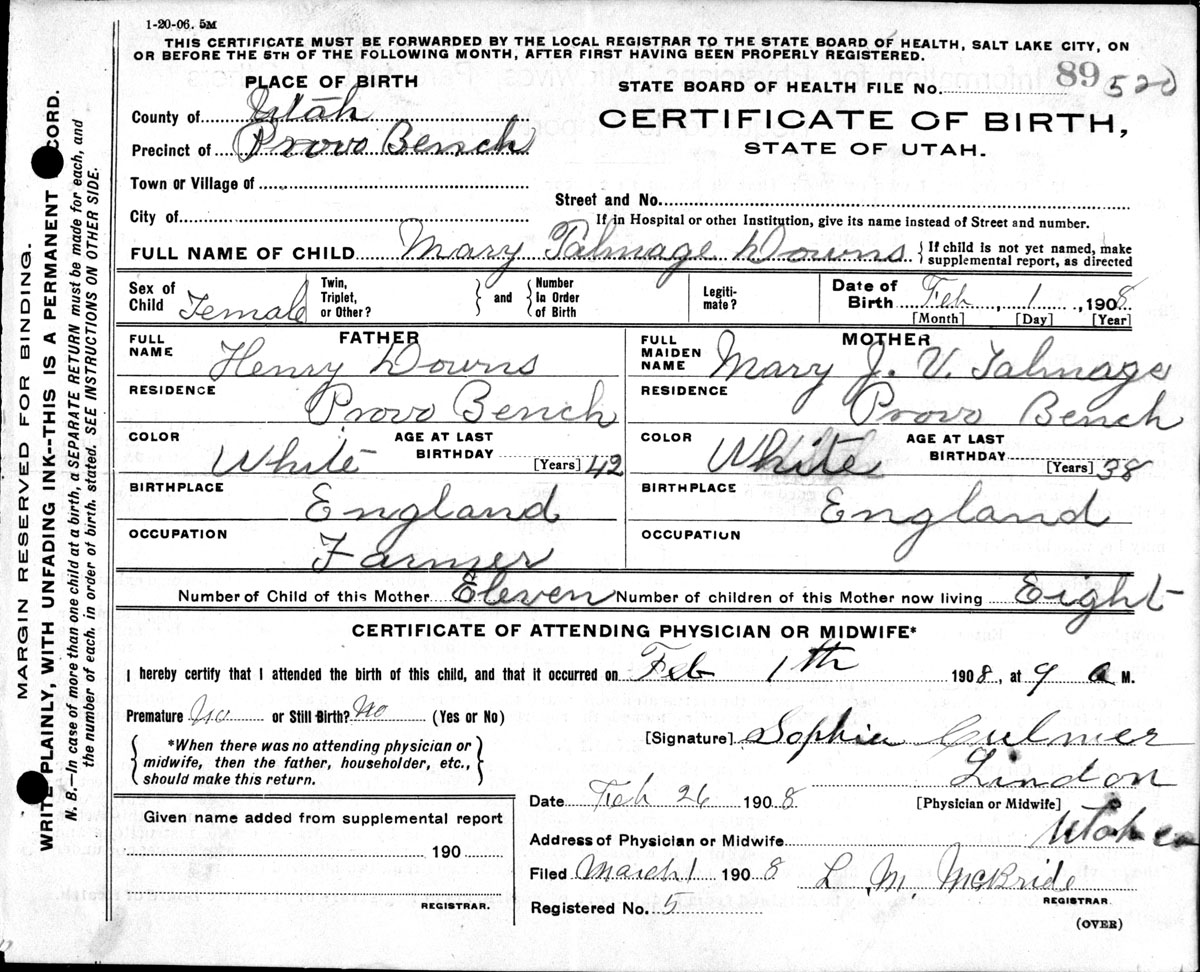 1-20-06. 5M
THIS CERTIFICATE MUST BE FORWARDED BY THE LOCAL REGISTRAR TO THE STATE BOARD OF HEALTH, SALT LAKE CITY, ON
OR BEFORE THE 5TH OF THE FOLLOWING MONTH, AFTER FIRST HAVING BEEN PROPERLY REGISTERED.
PLACE OF BIRTH
STATE BOARD OF HEALTH FILE No. 89 520
County of Utah
CERTIFICATE OF BIRTH,
Precinct of Provo Bench
STATE OF UTAH.
Town or Village of
Street and No.
City of
If in Hospital or other Institution, give its name instead of Street and number.
FULL NAME OF CHILD Mary Talmage Downs { If child is not yet named, make
supplemental report, as directed
Sex of Child Female
Twin, Triplet, or Other? } and { Number In Order of Birth
Legiti-mate?
Date of Birth Feb, 1, 1908
[Month] [Day] [Year]
FATHER
FULL NAME Henry Downs
RESIDENCE Provo Bench
COLOR White AGE AT LAST BIRTHDAY [Years] 42
BIRTHPLACE England
OCCUPATION Farmer
MOTHER
FULL MAIDEN NAME Mary J. V. Talmage
RESIDENCE Provo Bench
COLOR White AGE AT LAST BIRTHDAY [Years] 38
BIRTHPLACE England
OCCUPATION
Number of Child of this Mother Eleven Number of children of this Mother now living Eight
CERTIFICATE OF ATTENDING PHYSICIAN OR MIDWIFE*
I hereby certify that I attended the birth of this child, and that it occurred on Feb 1th 1908, at 9 a M.
Premature No or Still Birth? No (Yes or No)
{ *When there was no attending physician or
midwife, then the father, householder, etc.,
should make this return. }
[Signature] Sophia Culmer
Lindon
Date Feb 26 1908 [Physician or Midwife]
Address of Physician or Midwife Utah co
Filed March 1 1908 L. M. McBride
REGISTRAR.
Registered No. 5
(OVER)
Given name added from supplemental report
190
REGISTRAR.
MARGIN RESERVED FOR BINDING.
WRITE PLAINLY, WITH UNFADING INK--THIS IS A PERMANENT CORD.
N. B.—In case of more than one child at a birth, a SEPARATE RETURN must be made for each, and
the number of each, in order of birth, stated. SEE INSTRUCTIONS ON OTHER SIDE.